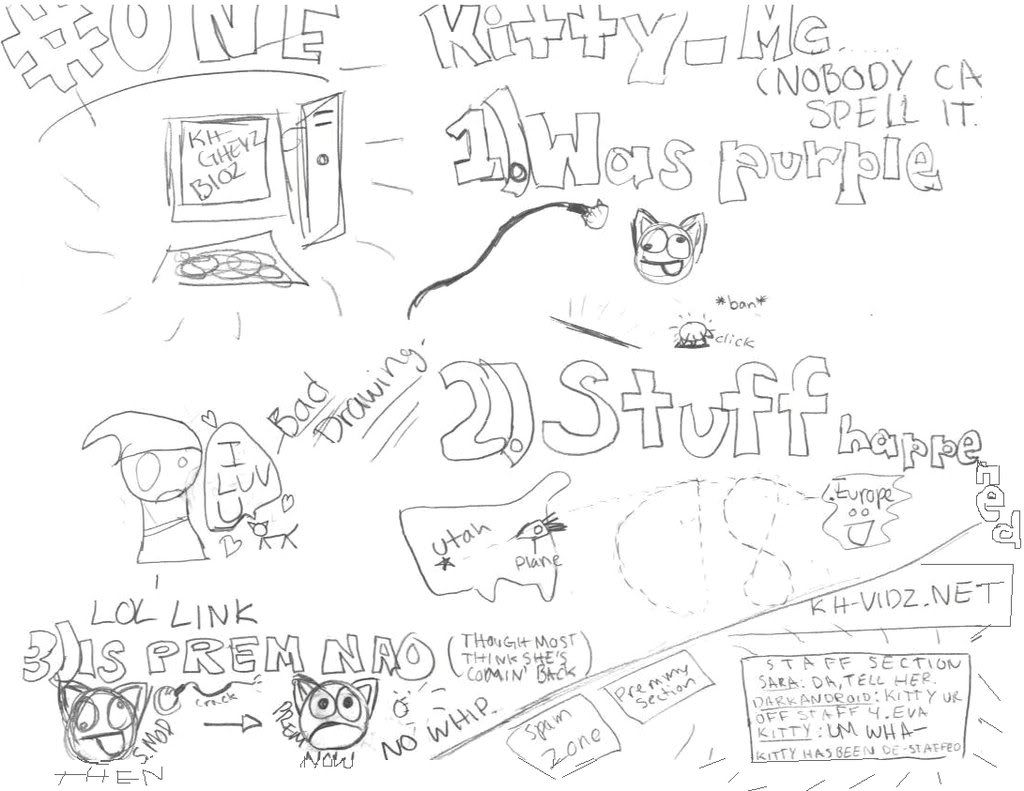 #ONE
Kitty_Mc......
(NOBODY CA
SPELL IT.
KH-
GHEVZ
BIOZ
1). Was purple
*ban*
click
Bad
Drawing.
I
LUV
U
2). Stuff happened
utah
plane
.Europe
LOL LINK
KH-VIDZ.NET
3) IS PREM NAO
(THOUGH MOST
THINK SHE'S
COMIN' BACK)
crack
S.MOD
THEN
PREM
NOW
NO WHIP.
Premmy
section
Spam
Zone
STAFF SECTION
SARA: DA, TELL HER.
DARKANDROID: KITTY UR
OFF STAFF 4. EVA
KITTY: UM WHA-
KITTY HAS BEEN DE-STAFFED